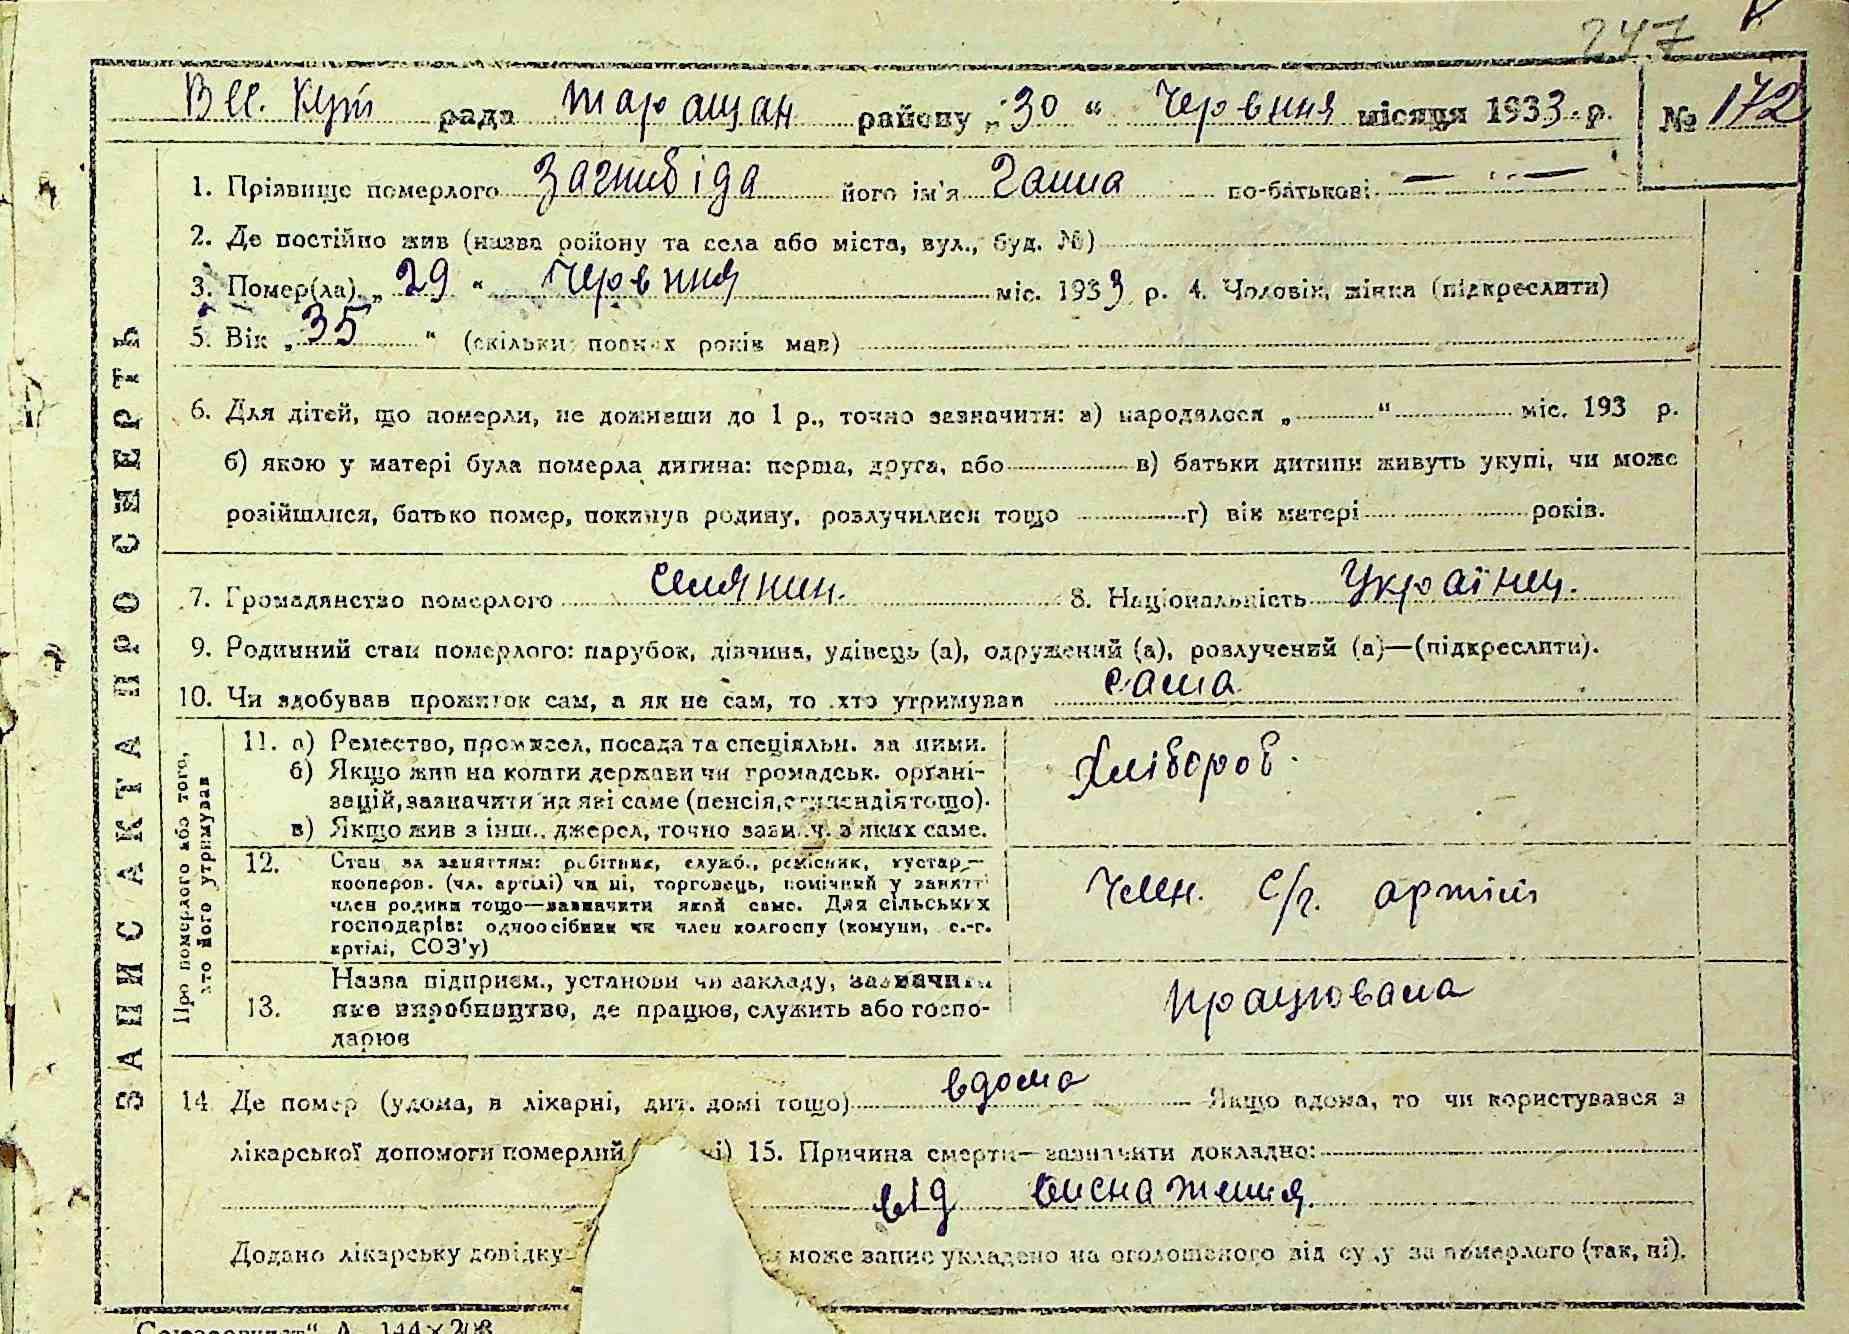 247
Вел. Кут рада Таращан району „30“ Червня місяця 1933 р. № 172
ЗАПИС АКТА ПРО СМЕРТЬ
1. Прізвище померлого Загнибіда його ім'я Ганна по-батькові — —
2. Де постійно жив (назва району та села або міста, вул., буд. №)
3. Помер(ла) „29“ Червня міс. 1933 р. 4. Чоловік, жінка (підкреслити)
5. Вік „35“ (скільки повних років мав)
6. Для дітей, що померли, не доживши до 1 р., точно зазначити: а) народилося „ “ міс. 193 р.
б) якою у матері була померла дитина: перша, друга, або в) батьки дитини живуть укупі, чи може
розійшлися, батько помер, покинув родину, розлучилися тощо г) вік матері років.
7. Громадянство померлого селянин. 8. Національність Українец.
9. Родинний стан померлого: парубок, дівчина, удівець (а), одружений (а), розлучений (а)—(підкреслити).
10. Чи здобував прожиток сам, а як не сам, то хто утримував сама
Про померлого або того,
хто його утримував
11. а) Ремество, промисел, посада та спеціяльн. за ними.
б) Якщо жив на кошти держави чи громадськ. органі-
зацій, зазначити на які саме (пенсія, стипендія тощо).
в) Якщо жив з інш. джерел, точно зазнач. з яких саме.
Хлібороб.
12. Стан за заняттям: робітник, служб., ремісник, кустар,—
кооперов. (чл. артілі) чи ні, торговець, помічний у занятті
член родини тощо—зазначити який саме. Для сільських
господарів: одноосібник чи член колгоспу (комуни, с.-г.
артілі, СОЗ'у)
Член. с/г. артілі
13. Назва підприєм., установи чи закладу, зазначити
яке виробництво, де працює, служить або госпо-
дарює
працювала
14 Де помер (удома, в лікарні, дит. домі тощо) вдома Якщо вдома, то чи користувався з
лікарської допомоги померлий ( ні) 15. Причина смерти—зазначити докладно:
від виснаження.
Додано лікарську довідку може запис укладено на оголошеного від суду за померлого (так, ні).
А. 144×208